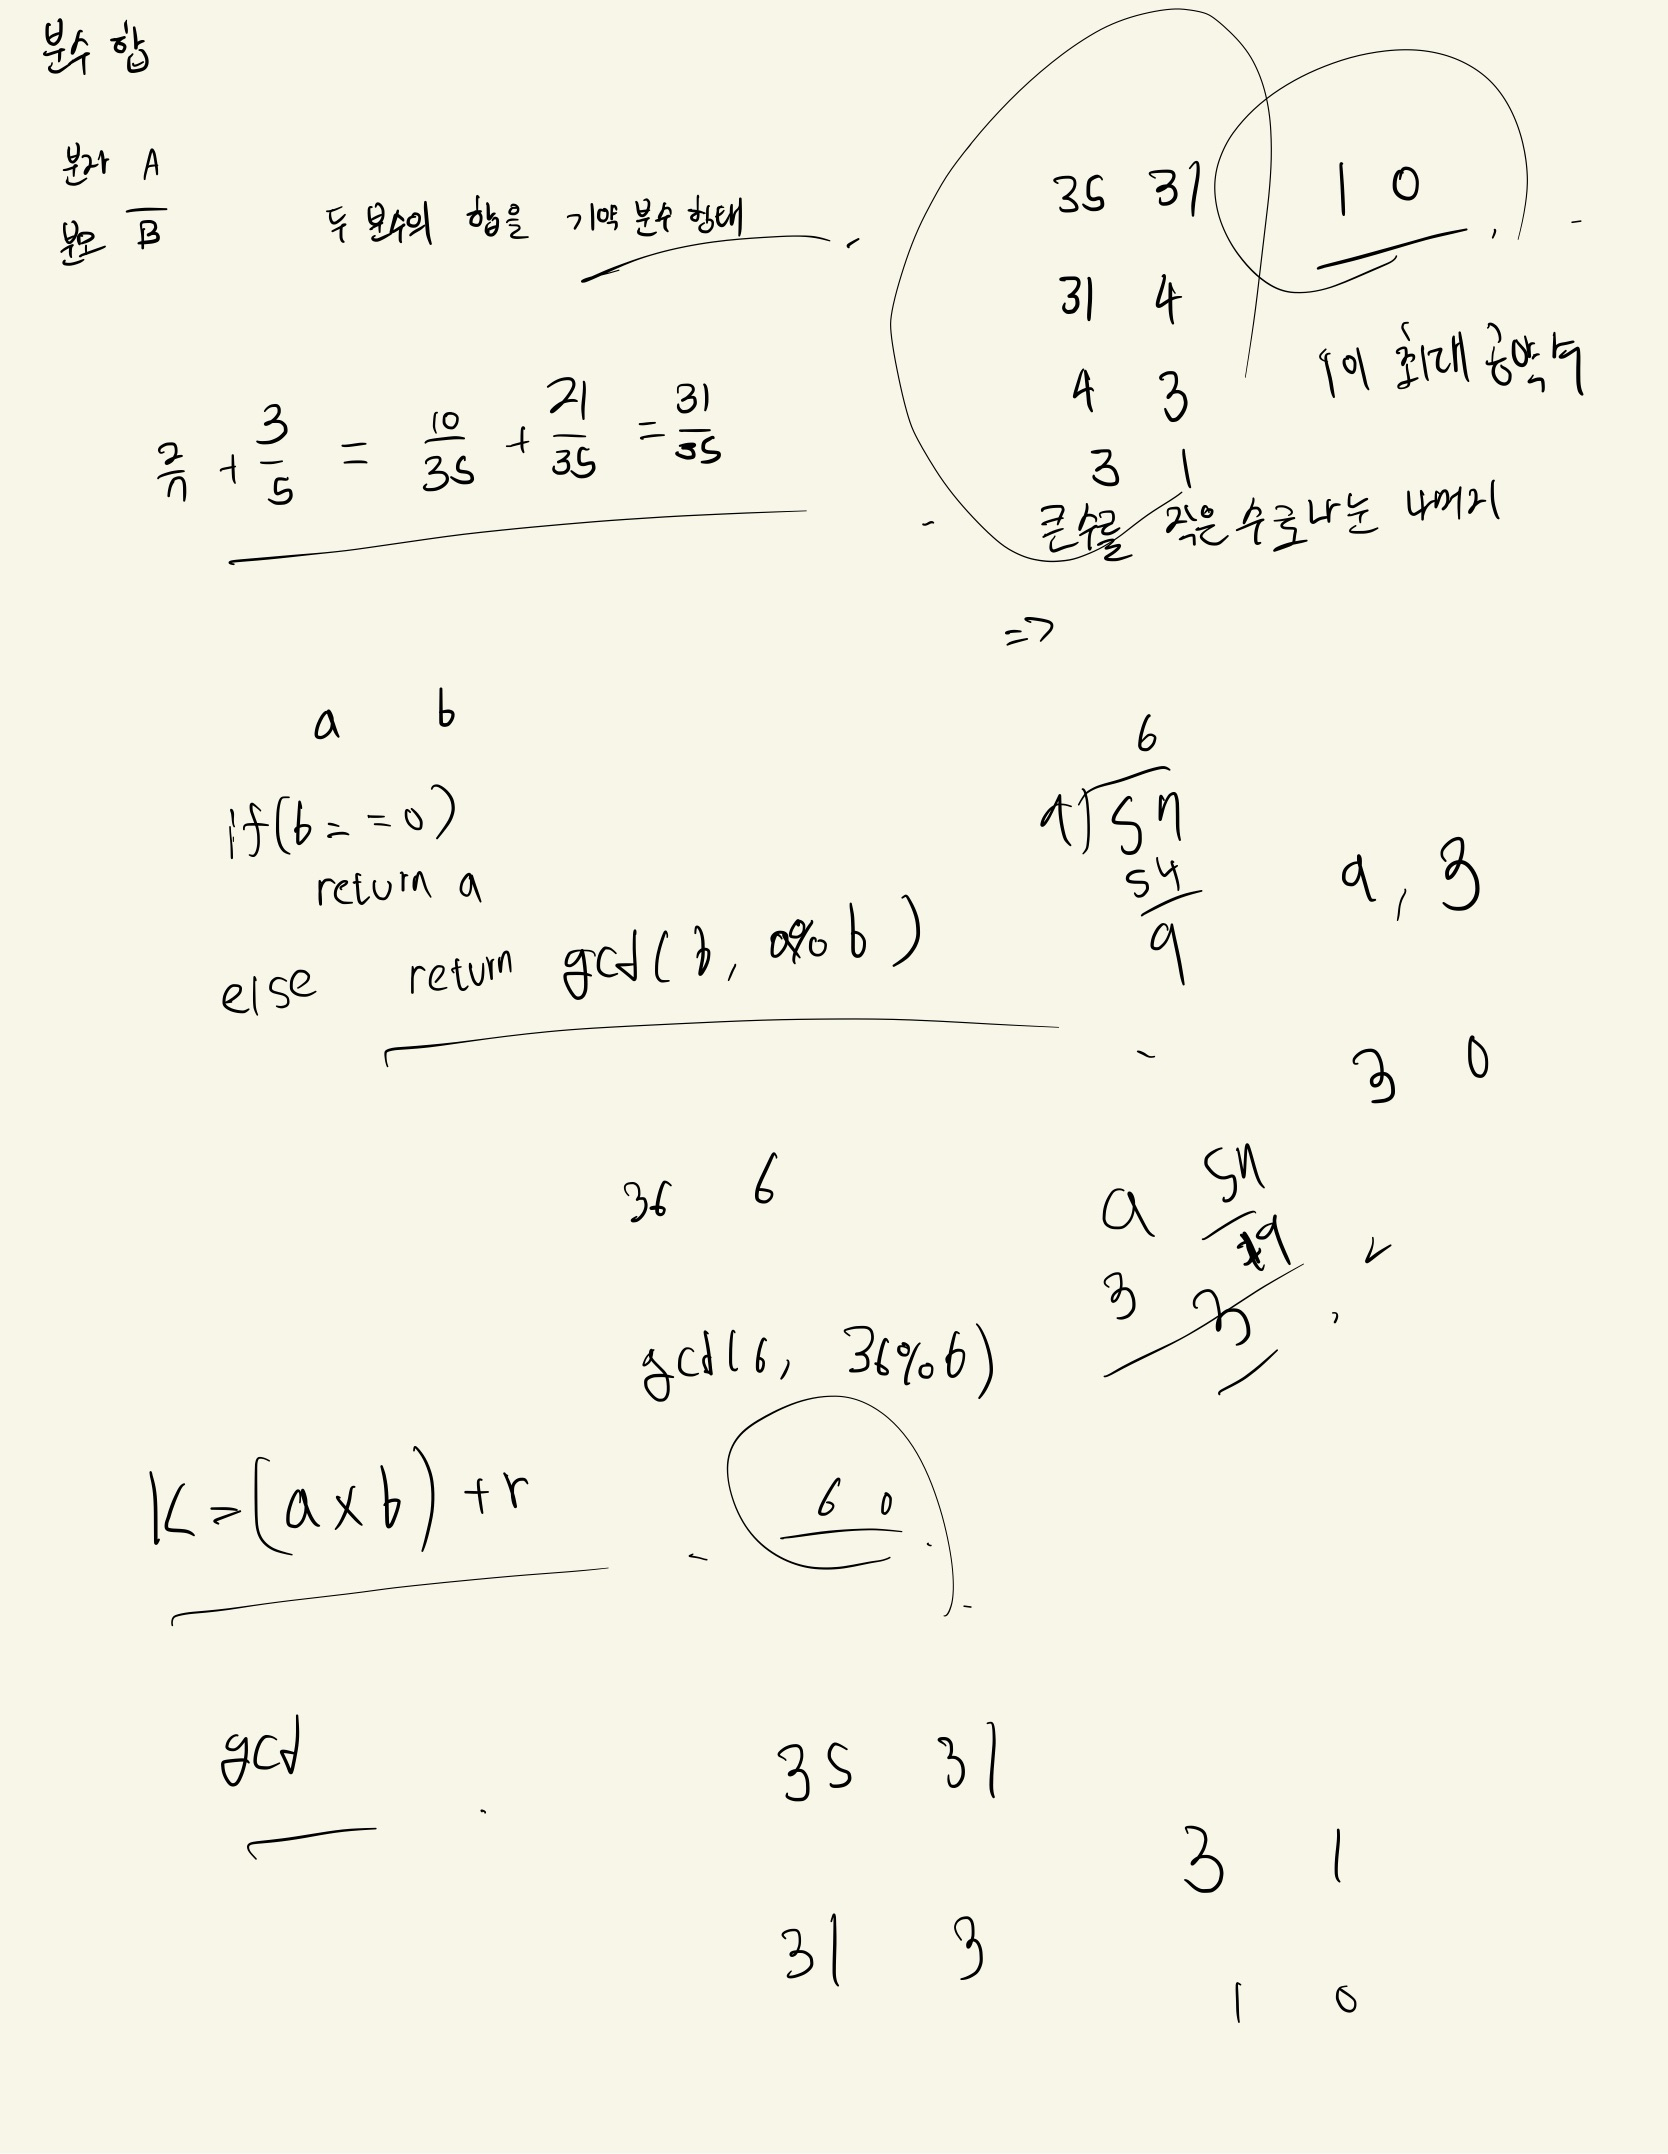 분수 합
분자 A
분모 B
두 분수의 합을 기약 분수 형태
35 31
1 0
31 4
1이 최대 공약수
4 3
3 1
큰 수를 작은 수로 나눈 나머지
2/7 + 3/5 = 10/35 + 21/35 = 31/35
=>
a b
if(b==0)
return a
else return gcd(b, a%b)
6
9)57
54
9, 3
3 0
36 6
9 57
3 3
gcd(6, 36%6)
6 0
K=(a×b)+r
gcd
35 31
3 1
31 3
1 0